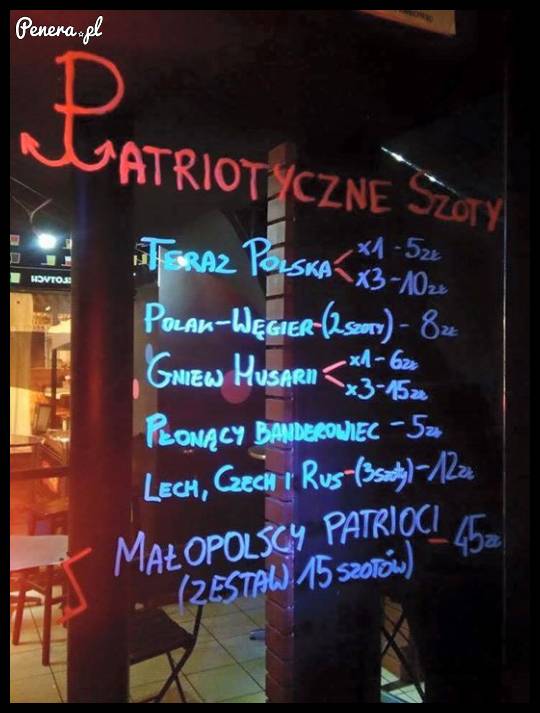 Penera.pl
PATRIOTYCZNE SZOTY
TERAZ POLSKA x1 - 5ZŁ
x3 - 10ZŁ
POLAK-WĘGIER-(2 SZOTY) - 8ZŁ
GNIEW HUSARII x1 - 6ZŁ
x3 - 15ZŁ
PŁONĄCY BANDEROWIEC - 5ZŁ
LECH, CZECH I RUS-(3 SZOTY) - 12ZŁ
MAŁOPOLSCY PATRIOCI - 45ZŁ
(ZESTAW 15 SZOTÓW)